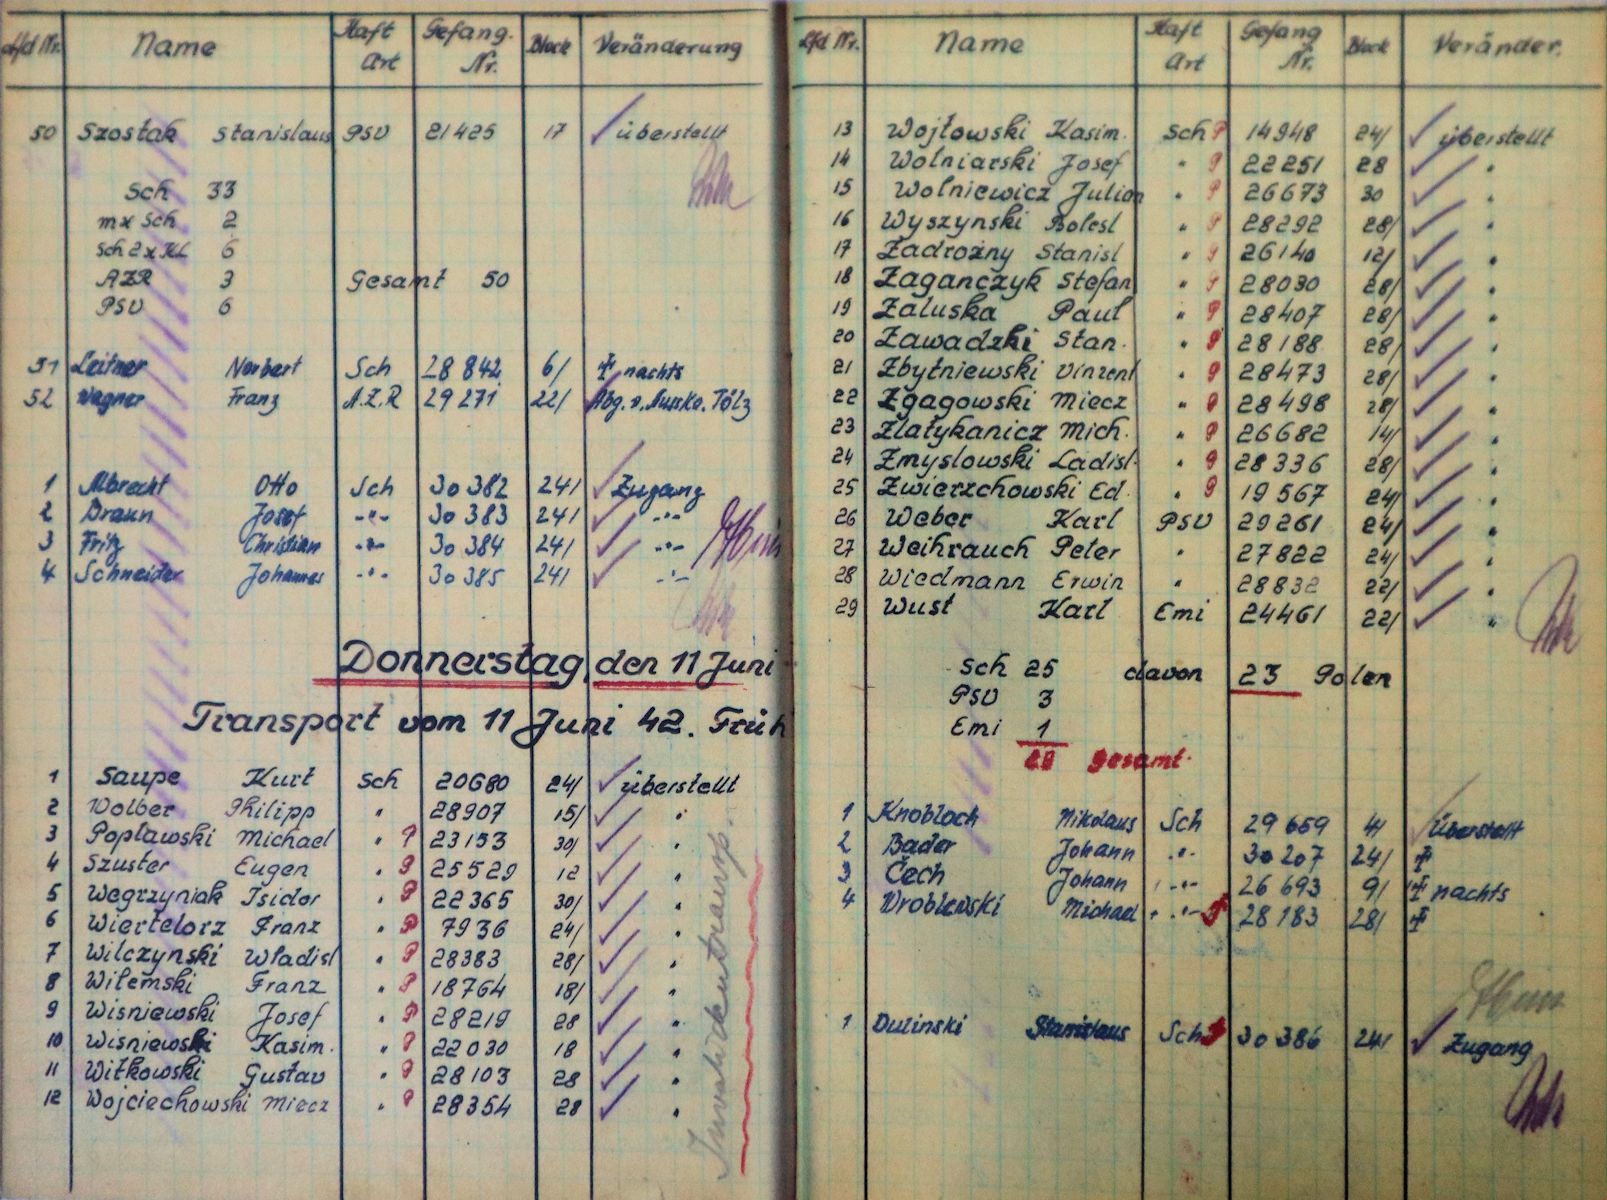 Lfd Nr. Name Haft Art Gefang. Nr. Block Veränderung
50 Szostak Stanislaus PSV 21425 17 überstellt
Sch 33
mx Sch 2
Sch 2x KL 6
AZR 3 Gesamt 50
PSV 6
51 Leitner Norbert Sch 28842 6/ nachts
52 Wagner Franz A.Z.R 29271 22/ Abg. v. Ausko. Tölz
1 Albrecht Otto Sch 30382 24/ Zugang
2 Braun Josef -"- 30383 24/ -"-
3 Fritz Christian -"- 30384 24/ -"-
4 Schneider Johannes -"- 30385 24/ -"-
Donnerstag, den 11 Juni
Transport vom 11 Juni 42. Früh
1 Saupe Kurt Sch 20680 24/ überstellt
2 Volber Philipp " 28907 15/ "
3 Popławski Michael " P 23153 30/ "
4 Szuster Eugen " P 25529 12 "
5 Wegrzyniak Isidor " P 22365 30/ "
6 Wiertelorz Franz " P 7936 24/ "
7 Wilczynski Władisl " P 28383 28/ "
8 Witemski Franz " P 18764 18/ "
9 Wisniewski Josef " P 28219 28 "
10 Wisniewski Kasim. " P 22030 18 "
11 Witkowski Gustav " P 28103 28 "
12 Wojciechowski Miecz " P 28354 28 "
Invalidentransp.
Lfd Nr. Name Haft Art Gefang Nr. Block Veränder.
13 Wojtowski Kasim. Sch P 14948 24/ überstellt
14 Wolniarski Josef " P 22251 28 "
15 Wolniewicz Julian " P 26673 30 "
16 Wyszynski Bolesl " P 28292 28/ "
17 Zadrożny Stanisl " P 26140 12/ "
18 Zaganczyk Stefan " P 28030 28/ "
19 Zaluska Paul " P 28407 28/ "
20 Zawadzki Stan. " P 28188 28/ "
21 Zbytniewski Vinzent " P 28473 28/ "
22 Zgagowski Miecz " P 28498 28/ "
23 Zlatykanicz Mich. " P 26682 14/ "
24 Zmyslowski Ladisl. " P 28336 28/ "
25 Zwierzchowski Ed. " P 19567 24/ "
26 Weber Karl PSV 29261 24/ "
27 Weihrauch Peter " 27822 24/ "
28 Wiedmann Erwin " 28832 22/ "
29 Wust Karl Emi 24461 22/ "
Sch 25 davon 23 Polen
PSV 3
Emi 1
29 gesamt.
1 Knobloch Nikolaus Sch 29659 4/ überstellt
2 Bader Johann -"- 30207 24/
3 Čech Johann -"- 26693 9/ nachts
4 Wroblewski Michael -"- P 28183 28/
1 Dulinski Stanislaus Sch P 30386 24/ Zugang